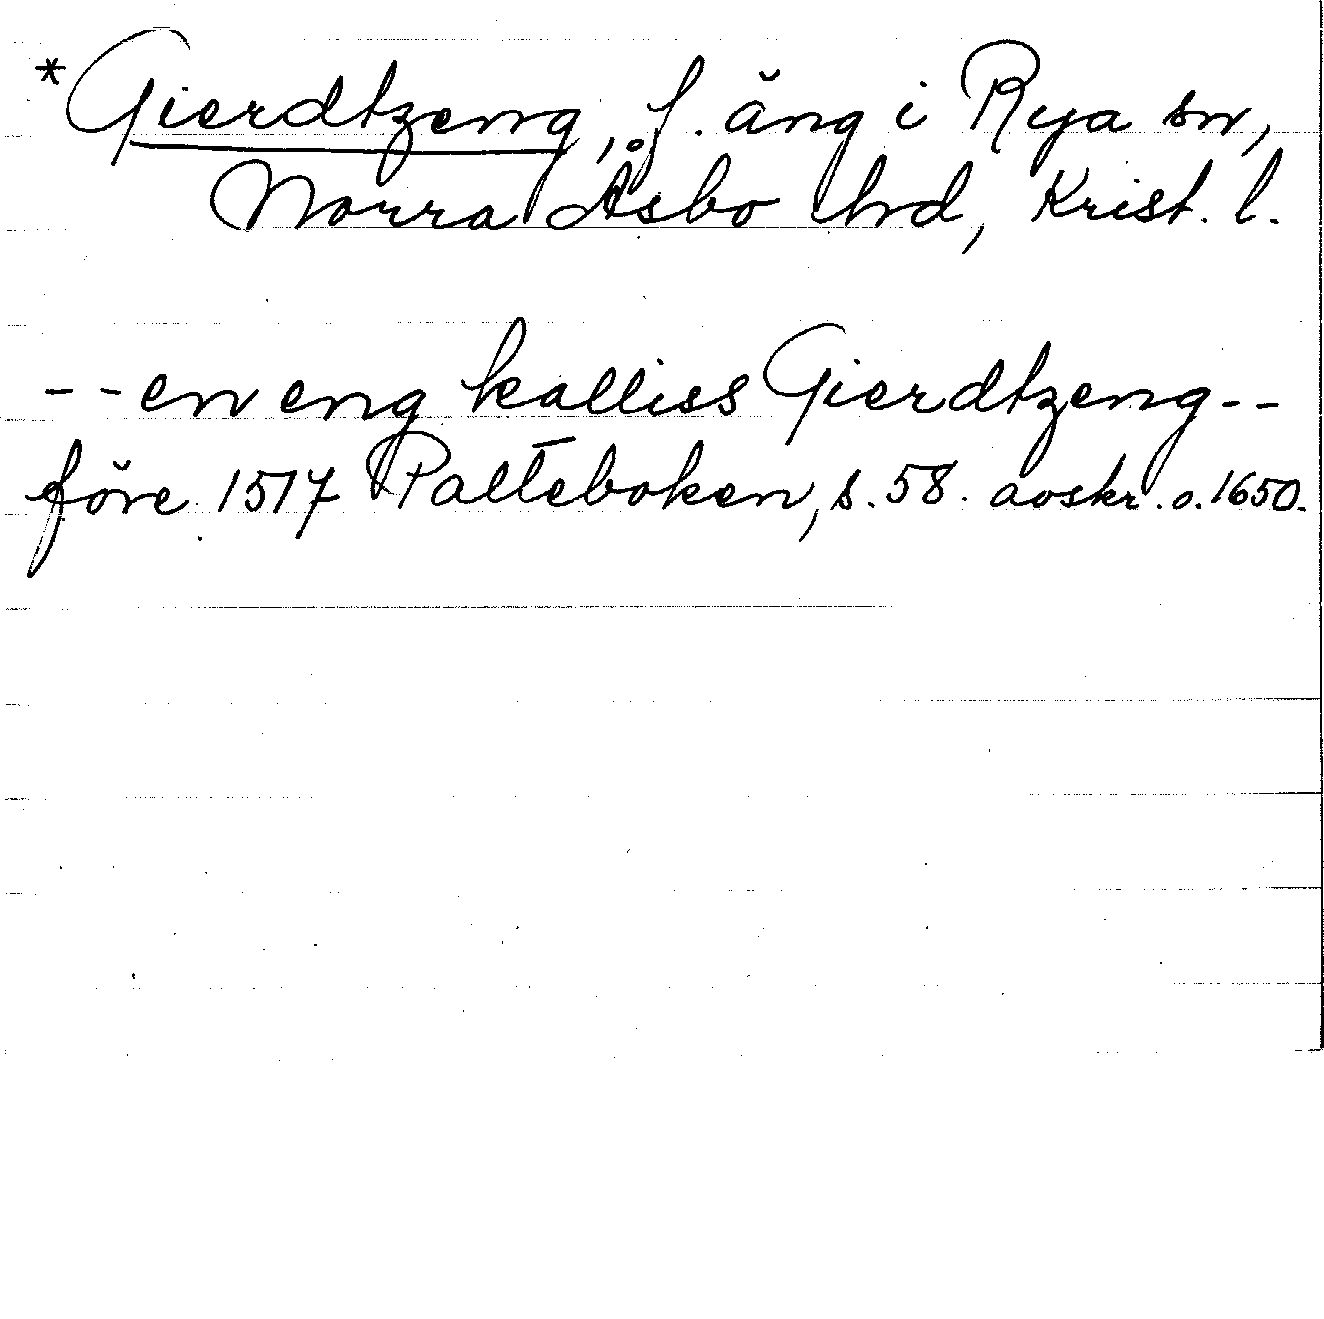 * Gierdtzeng, f. äng i Rya sn,
Norra Åsbo hd, Krist. l.
-- en eng kalliss Gierdtzeng --
före 1517 Palteboken, s. 58. avskr. o. 1650.